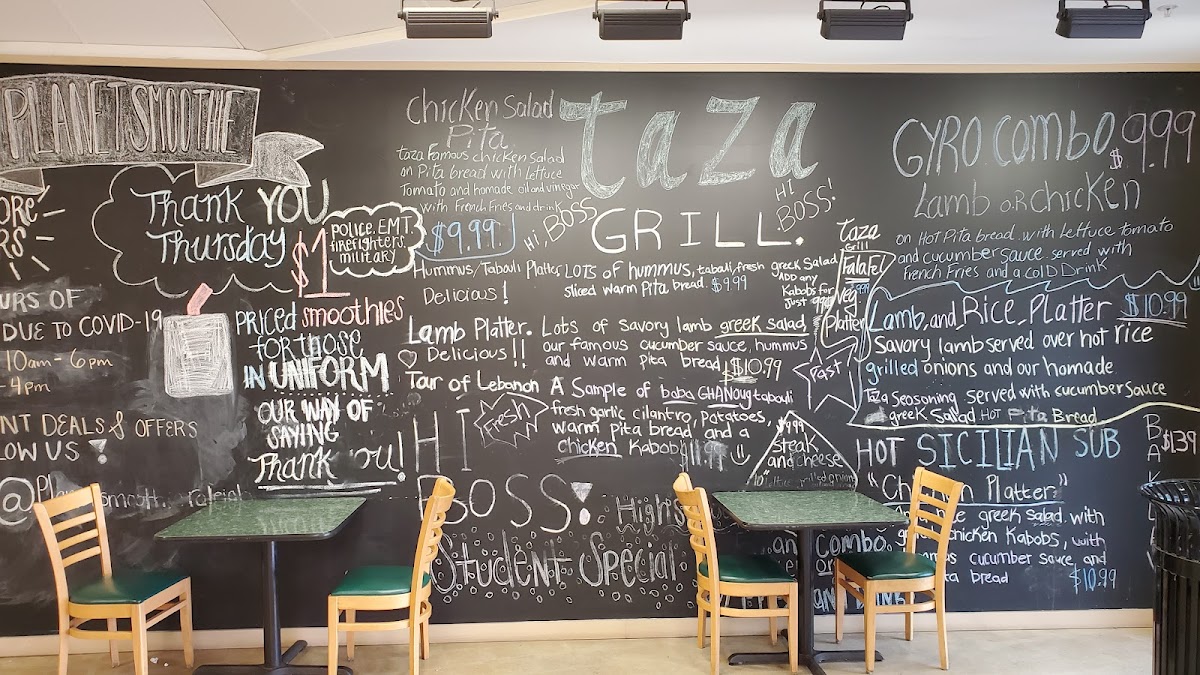 PLANET SMOOTHE
Thank YOU
Thursday
$1
police. EMT.
firefighters.
military
PRICED smoothies
FOR those
IN UNIFORM
OUR WAY OF
SAYING
Thank You!
ORE
RS
URS OF
DUE TO COVID-19
10am - 6pm
-4pm
NT DEALS & OFFERS
LOW US
chicken Salad
Pita
taza famous chicken salad
on Pita bread with lettuce
Tomato and homade oil and vinegar
with French Fries and drink
$9.99.
Hi, BOSS
taza
GRILL.
HI
BOSS!
Hummus/Tabouli Platter
Delicious!
LOTS of hummus, tabouli, fresh greek Salad
sliced warm Pita bread. $9.99
ADD any
Kabobs for
Just
Lamb Platter.
Delicious!!
Lots of savory lamb greek salad,
our famous cucumber sauce, hummus
and warm pita bread $10.99
Taar of Lebanon
A Sample of baba GHANoug tabouli
fresh garlic, cilantro, potatoes,
warm pita bread, and a
chicken Kabob $11.99
Fresh
HI
BOSS!
High
Student Special
taza
Grill
Falafel
Veg
Platter
Fast
$9.99
steak
and cheese
GYRO COMBO $9.99
Lamb OR chicken
on HOT Pita bread with Lettuce tomato
and cucumber sauce served with
french Fries and a COLD Drink
Lamb, and Rice Platter $10.99
Savory lamb served over hot rice
grilled onions and our homade
Taza Seasoning served with cucumber sauce
greek salad HOT Pita Bread
HOT SICILIAN SUB
Platter"
greek salad with
chicken Kabobs, with
cucumber sauce, and
pita bread $10.99
combo
$1.39